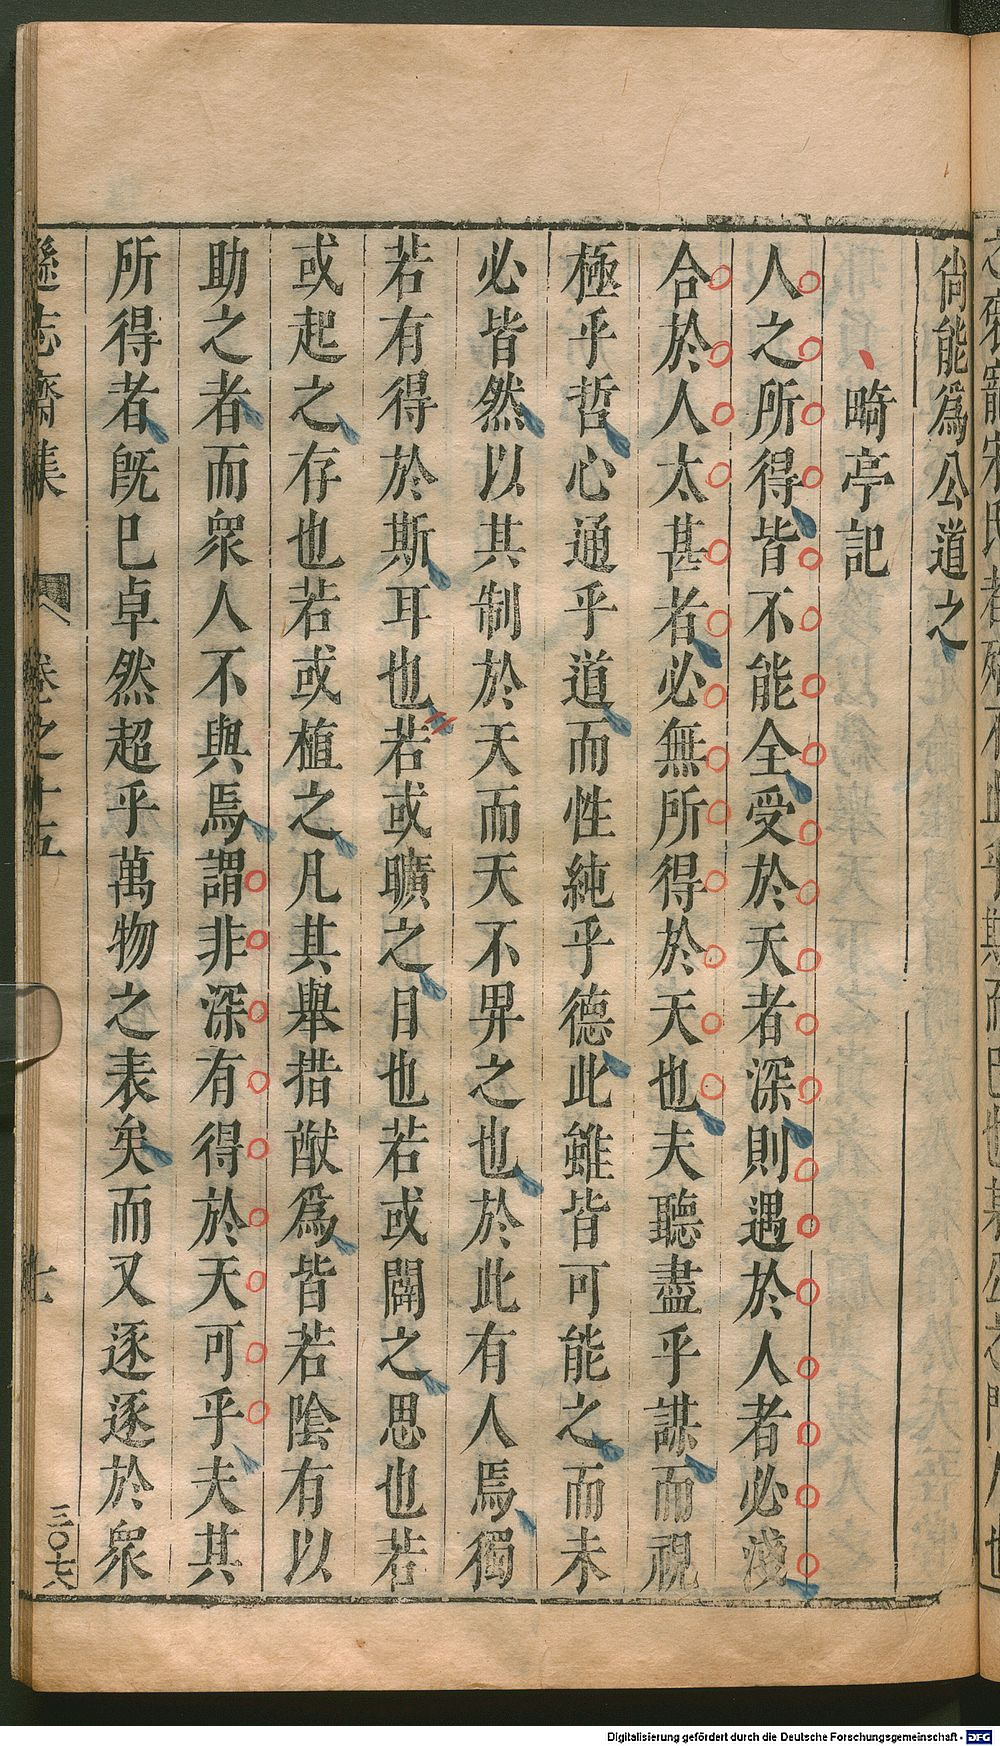 尙能爲公道之
畸亭記
人之所得皆不能全受於天者深則遇於人者必淺
合於人太甚者必無所得於天也夫聽盡乎謀而視
極乎哲心通乎道而性純乎德此雖皆可能之而未
必皆然以其制於天而天不畀之也於此有人焉獨
若有得於斯耳也若或曠之目也若或闢之思也若
或起之存也若或植之凡其舉措猷爲皆若陰有以
助之者而衆人不與焉謂非深有得於天可乎夫其
所得者旣巳卓然超乎萬物之表矣而又逐逐於衆
遜志齋集 卷之十五 七
三〇七六
Digitalisierung gefördert durch die Deutsche Forschungsgemeinschaft - DFG